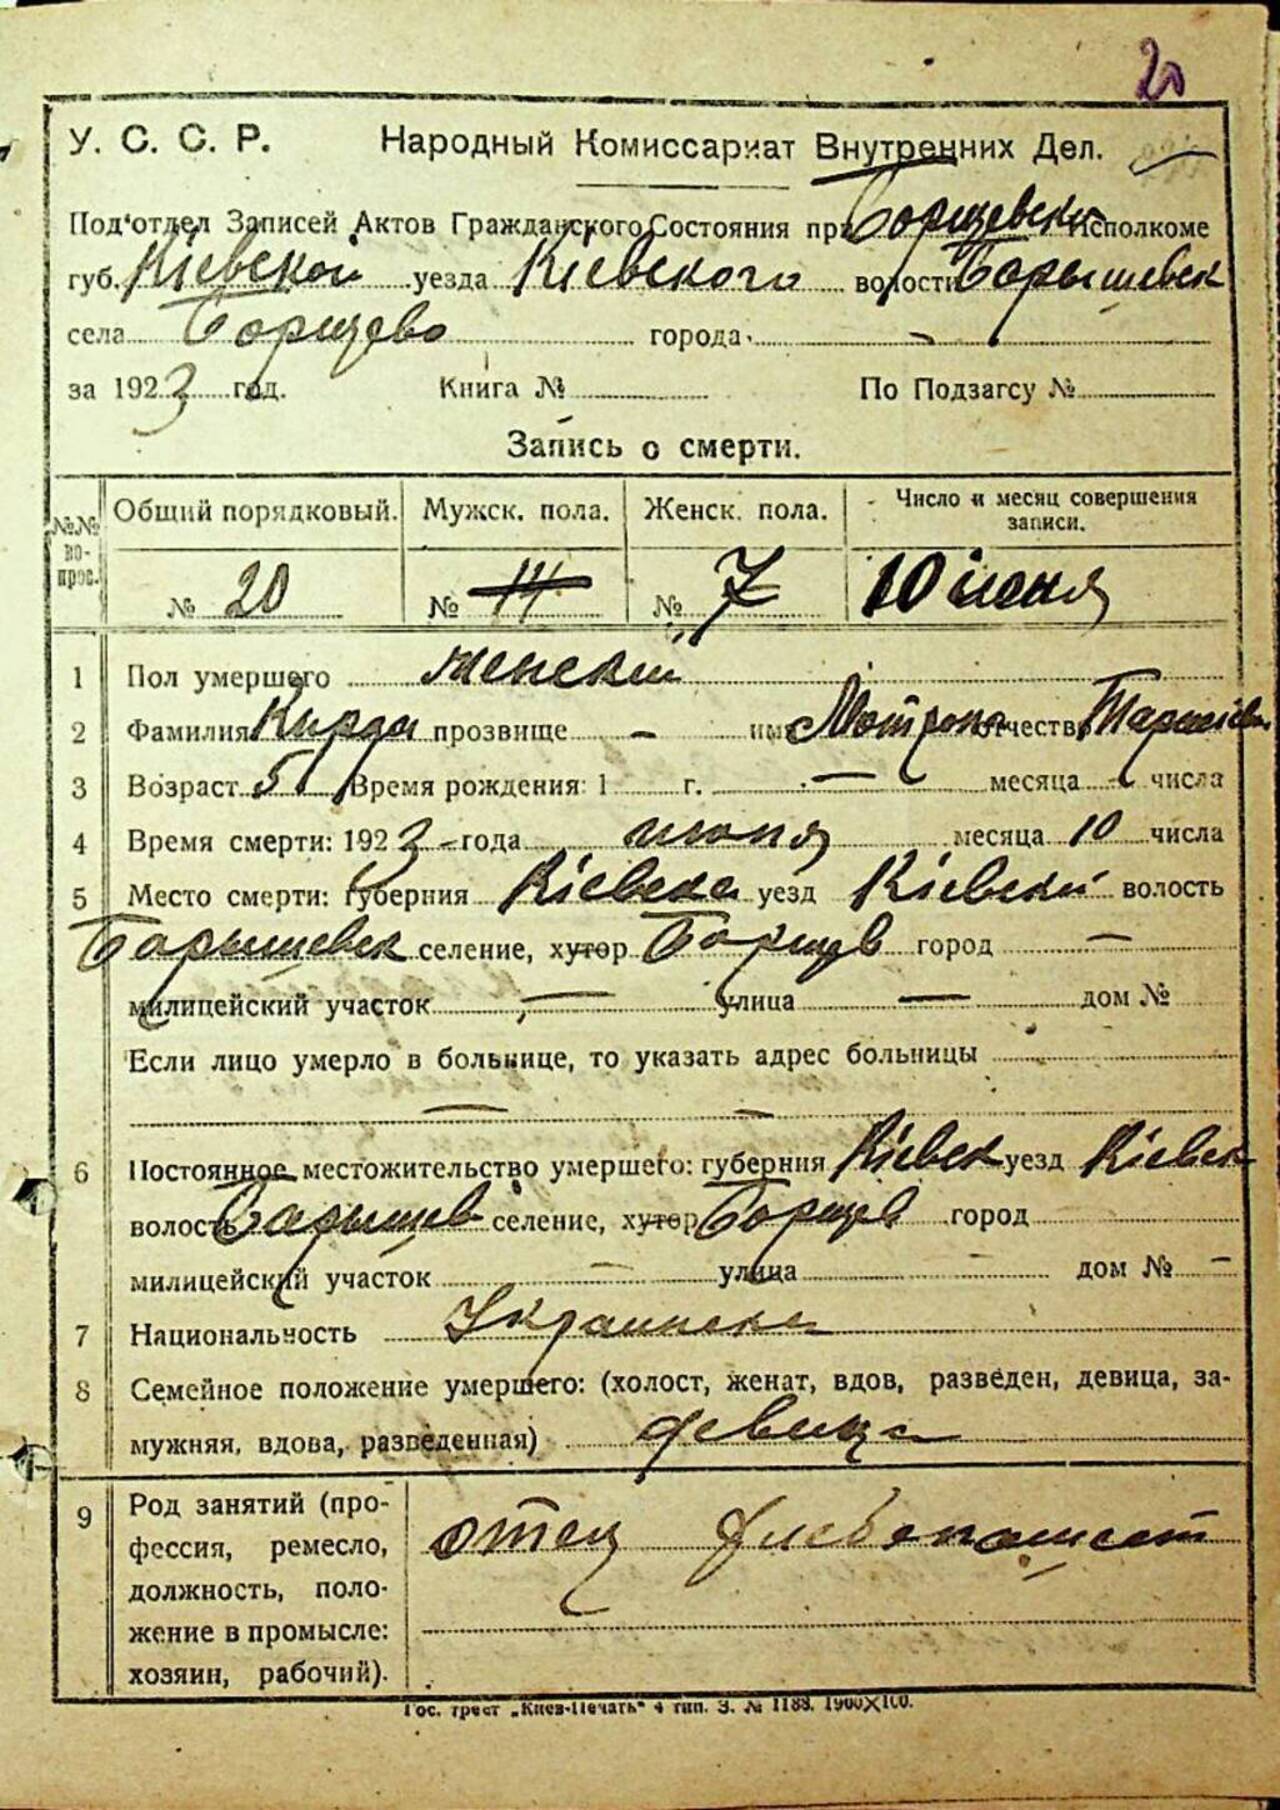 20
У. С. С. Р. Народный Комиссариат Внутренних Дел.
Под'отдел Записей Актов Гражданского Состояния при Борщевском Исполкоме
губ. Кіевской уезда Кіевского волости Барышевск
села Борщево города —
за 1923 год. Книга № По Подзагсу №
Запись о смерти.
№№ вопрос. Общий порядковый. Мужск. пола. Женск. пола. Число и месяц совершения записи.
№ 20 № 14 № 7 10 июня
1 Пол умершого женский
2 Фамилия Кирда прозвище — имя Мотрона отчество
3 Возраст 5 Время рождения: 1 г. — месяца — числа
4 Время смерти: 1923 года июня месяца 10 числа
5 Место смерти: Губерния Кіевска уезд Кіевский волость
Барышевск селение, хутор Борщев город —
милицейский участок — улица — дом №
Если лицо умерло в больнице, то указать адрес больницы
— —
6 Постоянное местожительство умершего: губерния Кіевск уезд Кіевск
волость Барышев селение, хутор Борщев город
милицейский участок — улица — дом № —
7 Национальность Украинска
8 Семейное положение умершего: (холост, женат, вдов, разведен, девица, за-
мужняя, вдова, разведенная) девица
9 Род занятий (про-
фессия, ремесло,
должность, поло-
жение в промысле:
хозяин, рабочий).
отец хлебопашест
Гос. трест „Киев-Печать" 4 тип. З. № 1188. 1900×100.